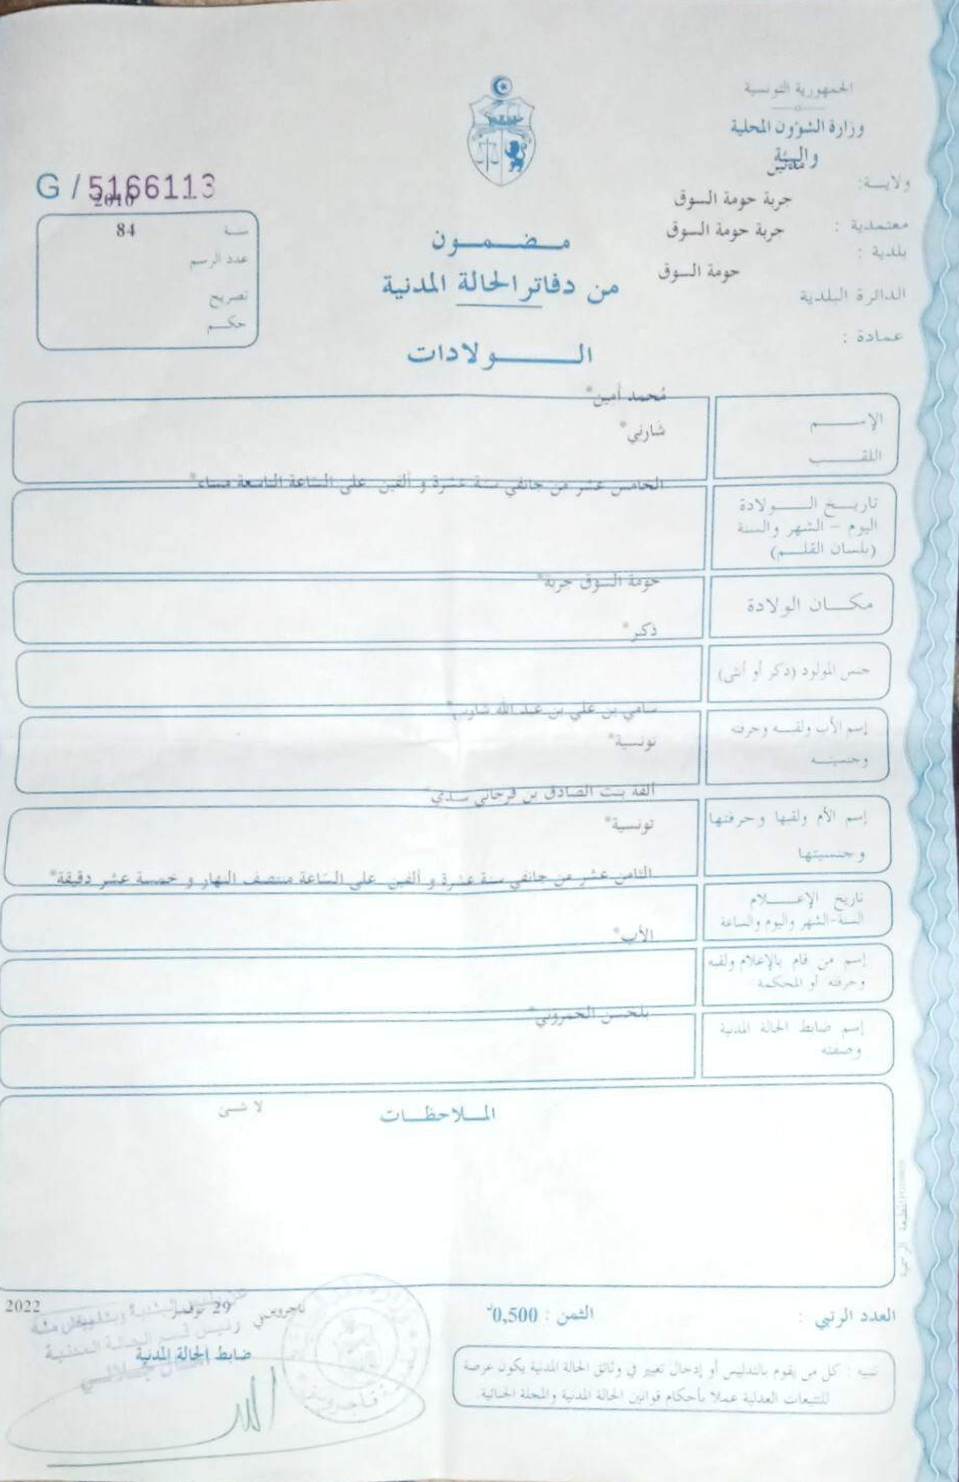 الجمهورية التونسية
وزارة الشؤون المحلية
والبيئة
ولايـة: مدنين
جربة حومة السوق
معتمدية :
جربة حومة السوق
بلدية :
حومة السوق
الدائرة البلدية
عمادة :
G / 5166113
2010
سنة
84
عدد الرسم
تصريح
حكم
مضمون
من دفاتر الحالة المدنية
الولادات
مُحمد أمين*
الإسم
شارني*
اللقب
الخامس عشر من جانفي سنة عشرة و ألفين على الساعة التاسعة مساء*
تاريخ الولادة
اليوم - الشهر والسنة
(بلسان القلم)
حومة السوق جربة*
مكان الولادة
ذكر*
جنس المولود (ذكر أو أنثى)
سامي بن علي بن عبد الله شارني*
إسم الأب ولقبه وحرفته
تونسية*
وجنسيته
ألفة بنت الصادق بن فرحاني سدي
إسم الأم ولقبها وحرفتها
تونسية*
وجنسيتها
الثامن عشر من جانفي سنة عشرة و ألفين على الساعة منتصف النهار و خمسة عشر دقيقة*
تاريخ الإعلام
السنة-الشهر واليوم والساعة
الأب*
إسم من قام بالإعلام ولقبه
وحرفته أو المحكمة
بلحسن الحمروني*
إسم ضابط الحالة المدنية
وصفته
الملاحظات
لا شئ
العدد الرتبي :
الثمن : 0,500د
تاجروين في 29 نوفمبر 2022
رئيس قسم الحالة المدنية
ضابط الحالة المدنية
تنبيه : كل من يقوم بالتدليس أو إدخال تغيير في وثائق الحالة المدنية يكون عرضة
للتتبعات العدلية عملا بأحكام قوانين الحالة المدنية والمجلة الجنائية